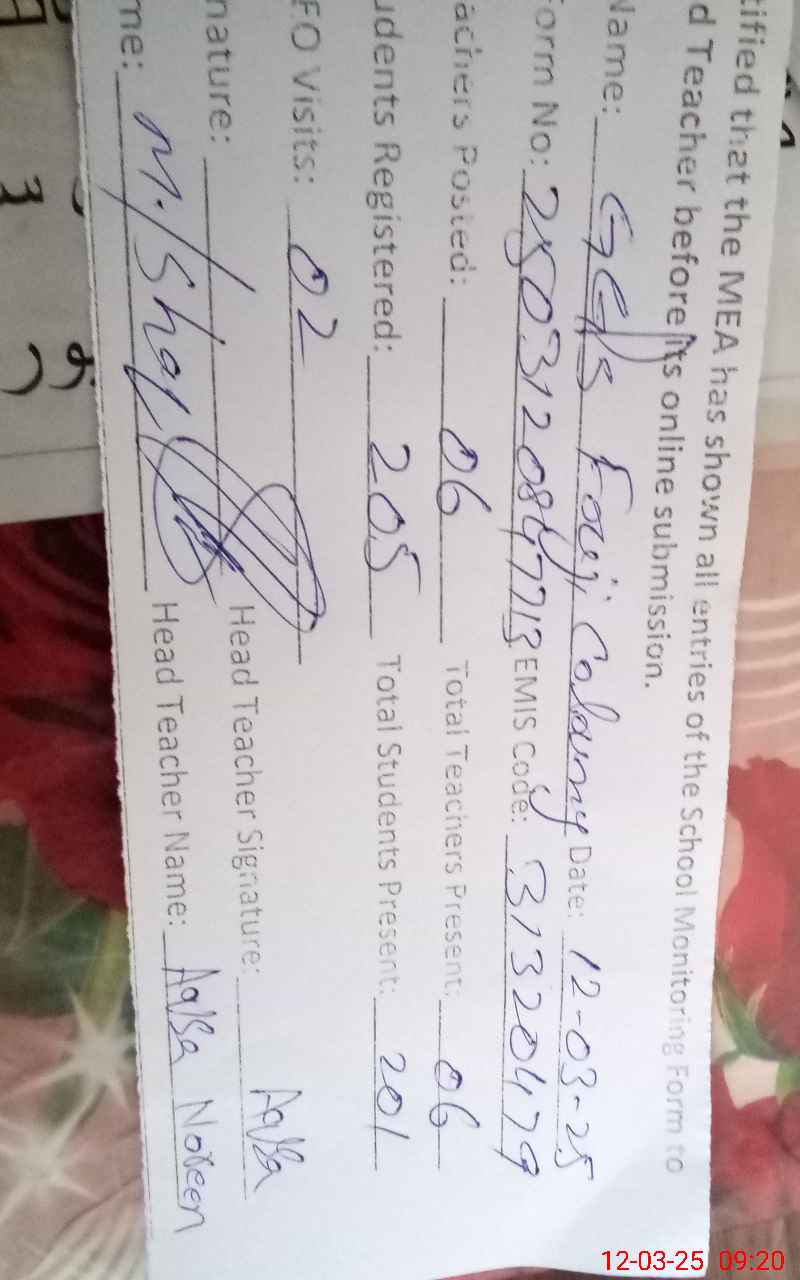 tified that the MEA has shown all entries of the School Monitoring Form to
d Teacher before its online submission.
Name: GGPS Fouji Colony Date: 12-03-25
orm No: 2503120847713 EMIS Code: 31320479
achers Posted: 06 Total Teachers Present: 06
udents Registered: 205 Total Students Present: 201
EO Visits: 02
nature: Head Teacher Signature: Aqsa
me: M. Head Teacher Name: Aqsa Noreen
12-03-25 09:20